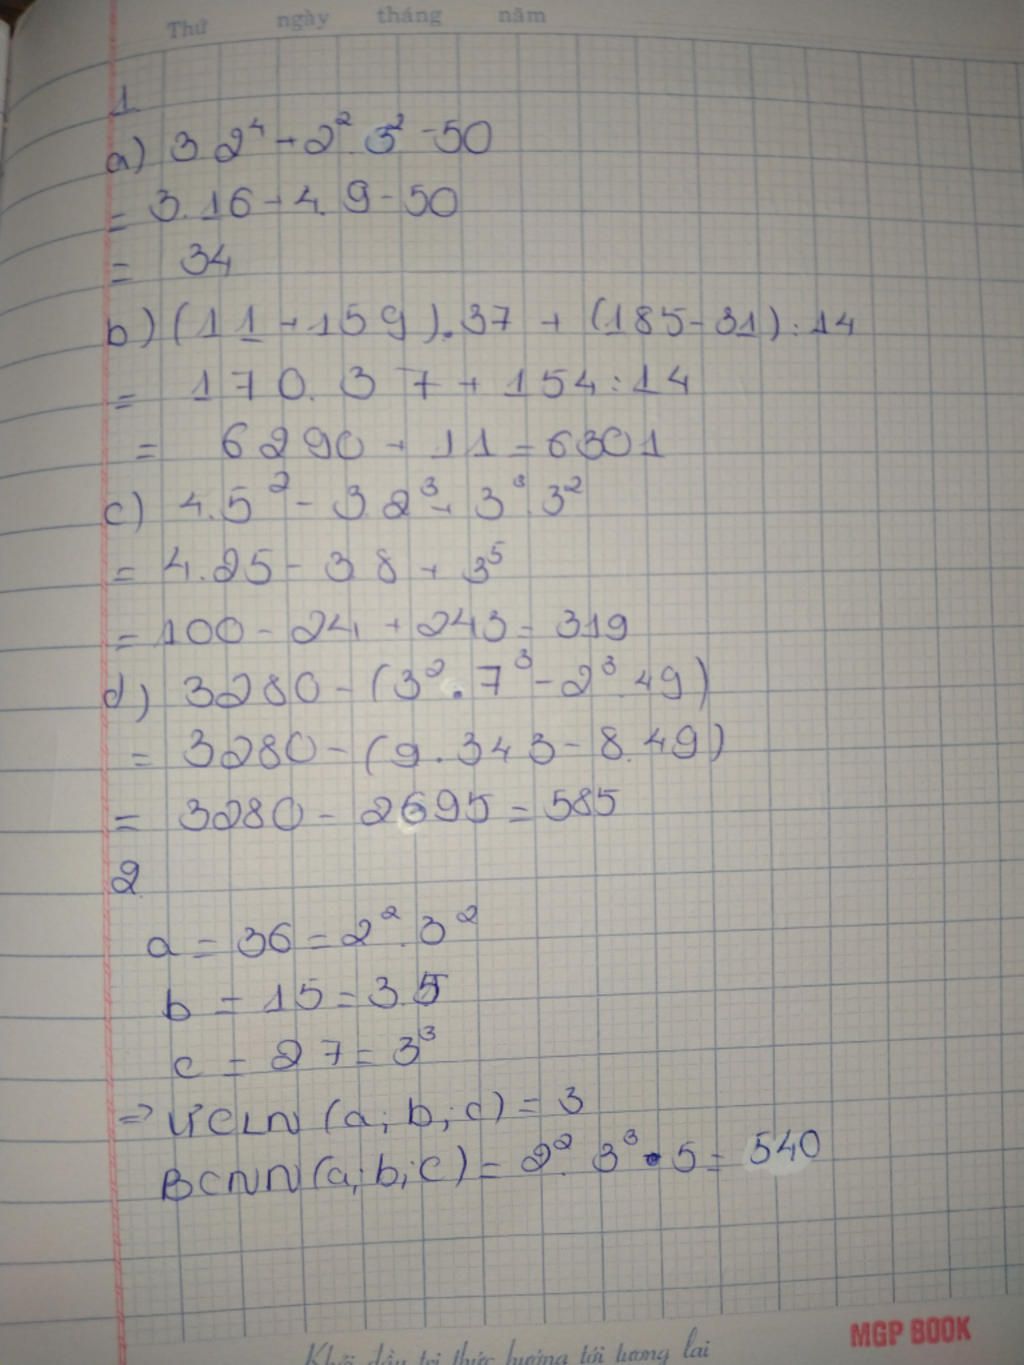 Thứ ngày tháng năm
1
a) 3.2⁴ + 2².3² - 50
= 3.16 + 4.9 - 50
= 34
b) (11 + 159).37 + (185 - 31):14
= 170.37 + 154:14
= 6290 + 11 = 6301
c) 4.5² - 3.2³ + 3³.3²
= 4.25 - 3.8 + 3⁵
= 100 - 24 + 243 = 319
d) 3280 - (3².7³ - 2³.49)
= 3280 - (9.343 - 8.49)
= 3280 - 2695 = 585
2
a = 36 = 2².3²
b = 15 = 3.5
c = 27 = 3³
⇒ ƯCLN (a; b; c) = 3
BCNN (a; b; c) = 2².3³.5 = 540
Khởi đầu tri thức hướng tới tương lai
MGP BOOK